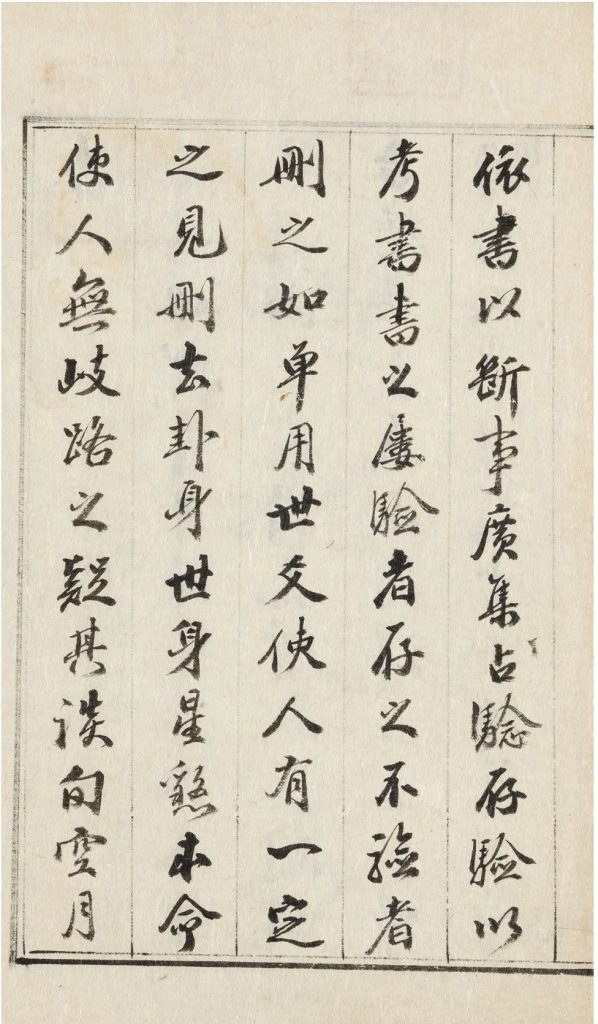 依書以斷事廣集占驗存驗以
考書書之屢驗者存之不驗者
刪之如单用世爻使人有一定
之見刪去卦身世身星煞本命
使人無歧路之疑其談旬空月